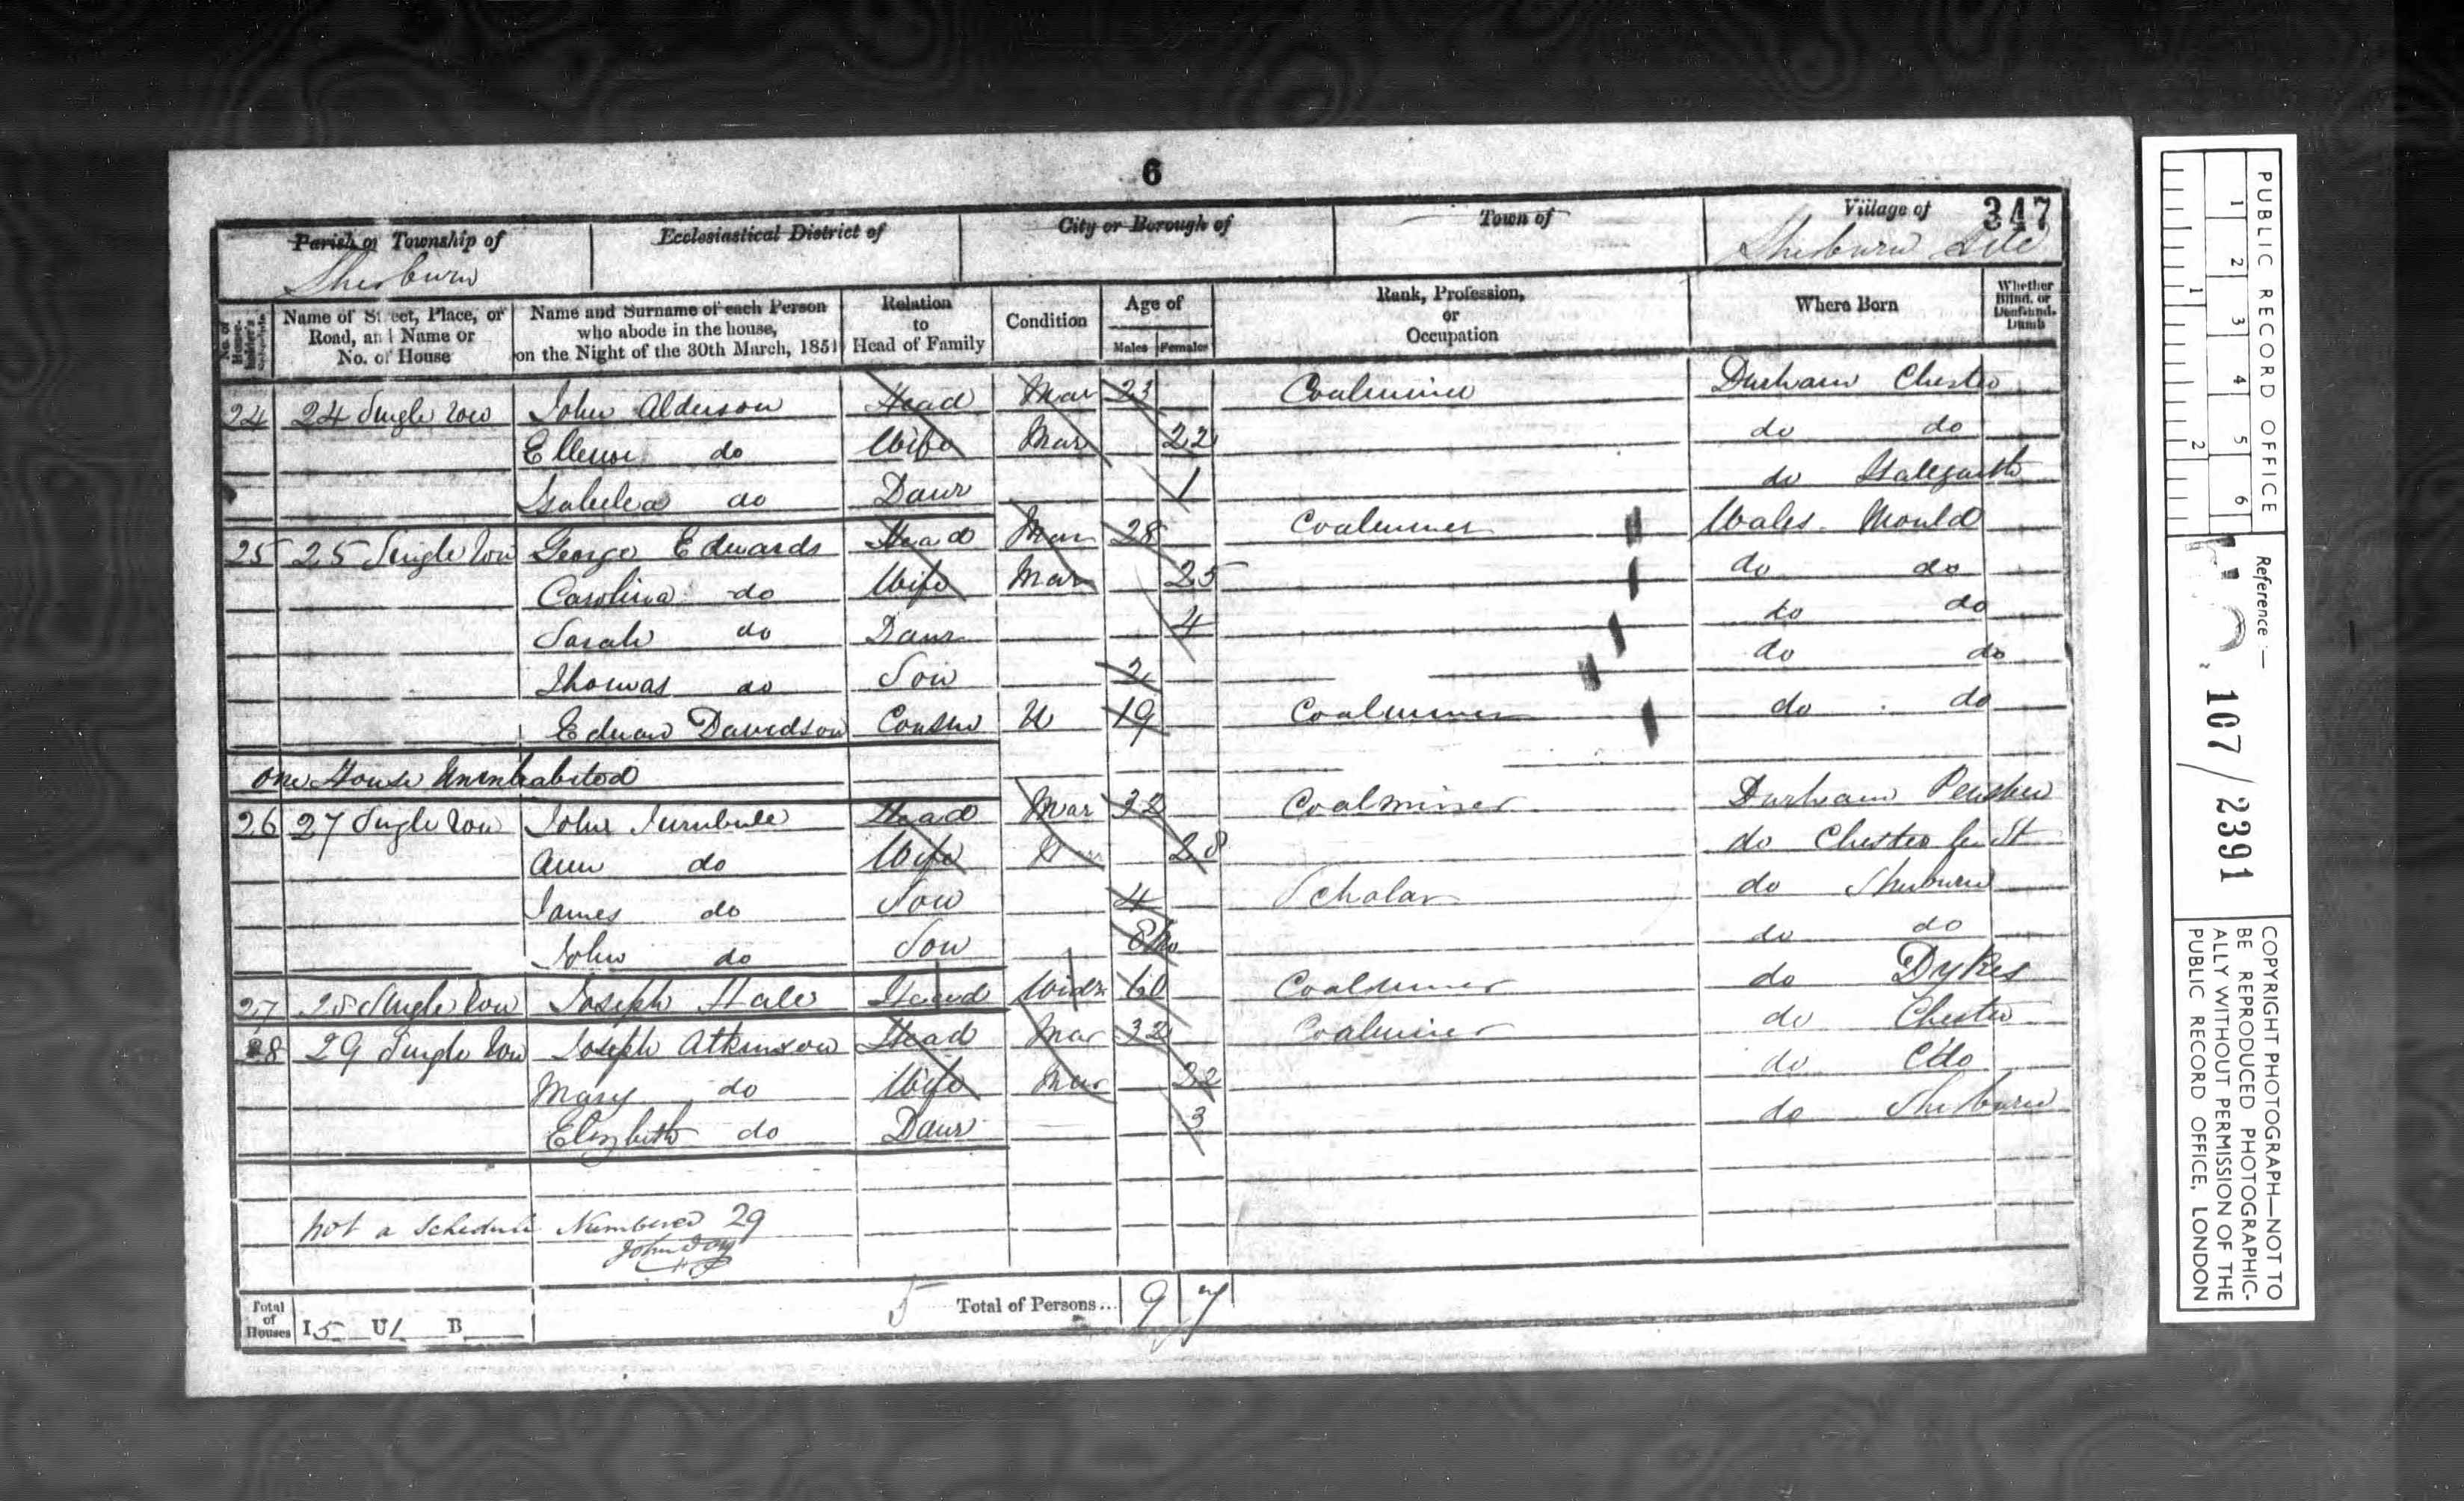 6
347
Parish or Township of
Sherburn
Ecclesiastical District of
City or Borough of
Town of
Village of
Sherburn
No. of House-holder's Schedule
Name of Street, Place, or Road, and Name or No. of House
Name and Surname of each Person who abode in the house, on the Night of the 30th March, 1851
Relation to Head of Family
Condition
Age of
Males Females
Rank, Profession, or Occupation
Where Born
Whether Blind, or Deaf-and-Dumb
24 24 Single Row John Alderson Head Mar 23 Coalminer Durham Chester
do Wife Mar 22 do do
do Daur 1 do
25 25 Single Row George Edwards Head Mar 28 Coalminer Wales Mould
Carolina do Wife Mar 25 do do
Sarah do Daur 4 do do
Thomas do Son 2 do do
Davidson Cousin U 19 Coalminer do do
One House Uninhabited
26 27 Single Row John Turnbull Head Mar 32 Coalminer Durham Penshew
Ann do Wife 28 do Chester le St
James do Son 4 Scholar do Sherburn
John do Son 8 Mo do do
27 28 Single Row Joseph Hale Head Widr 60 Coalminer do Dykes
28 29 Single Row Joseph Atkinson Head Mar 32 Coalminer do Chester
Mary do Wife Mar 22 do do
Elizbeth do Daur 3 do Sherburn
not a Schedule Numbered 29
Total of Houses I 5 U 1 B
5 Total of Persons... 9 7
PUBLIC RECORD OFFICE
1 2 3 4 5 6
1 2
Reference:—
107/2391
COPYRIGHT PHOTOGRAPH—NOT TO
BE REPRODUCED PHOTOGRAPHIC-
ALLY WITHOUT PERMISSION OF THE
PUBLIC RECORD OFFICE, LONDON